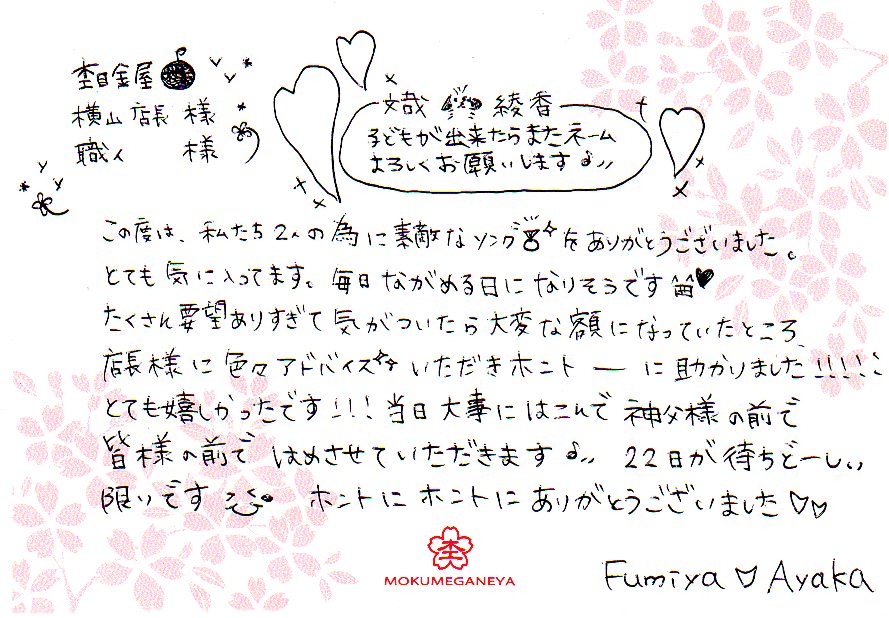 杢目金屋
横山店長 様
職人 様
文哉 綾香
子どもが出来たらまたネーム
よろしくお願いします♪
この度は、私たち2人の為に素敵なリングをありがとうございました。
とても気に入ってます。毎日ながめる日になりそうです
たくさん要望ありすぎて気がついたら大変な額になっていたところ、
店長様に色々アドバイスいただきホントーに助かりました!!!!!
とても嬉しかったです!!!当日大事にはこんで神父様の前で
皆様の前ではめさせていただきます♪ 22日が待ちどーしい
限りです ホントにホントにありがとうございました♡♡
MOKUMEGANEYA
Fumiya ♡ Ayaka